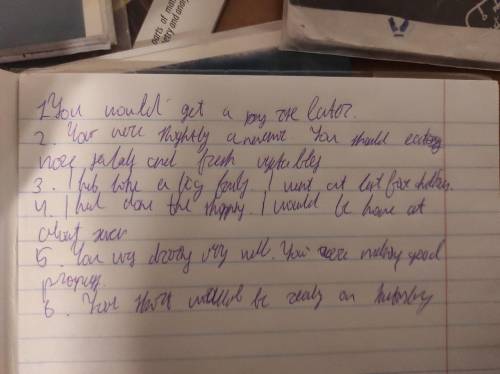 parts of mat
try and anal
1. You would get a pay rise later.
2. You were slightly anaemic You should eating
more salads and fresh vegetables
3. I had a big family I want at least five children.
4. I had done the shopping. I would be home at
about seven
5. You were driving very well. You were making good
progress.
6. Your shirts would be ready on Thursday